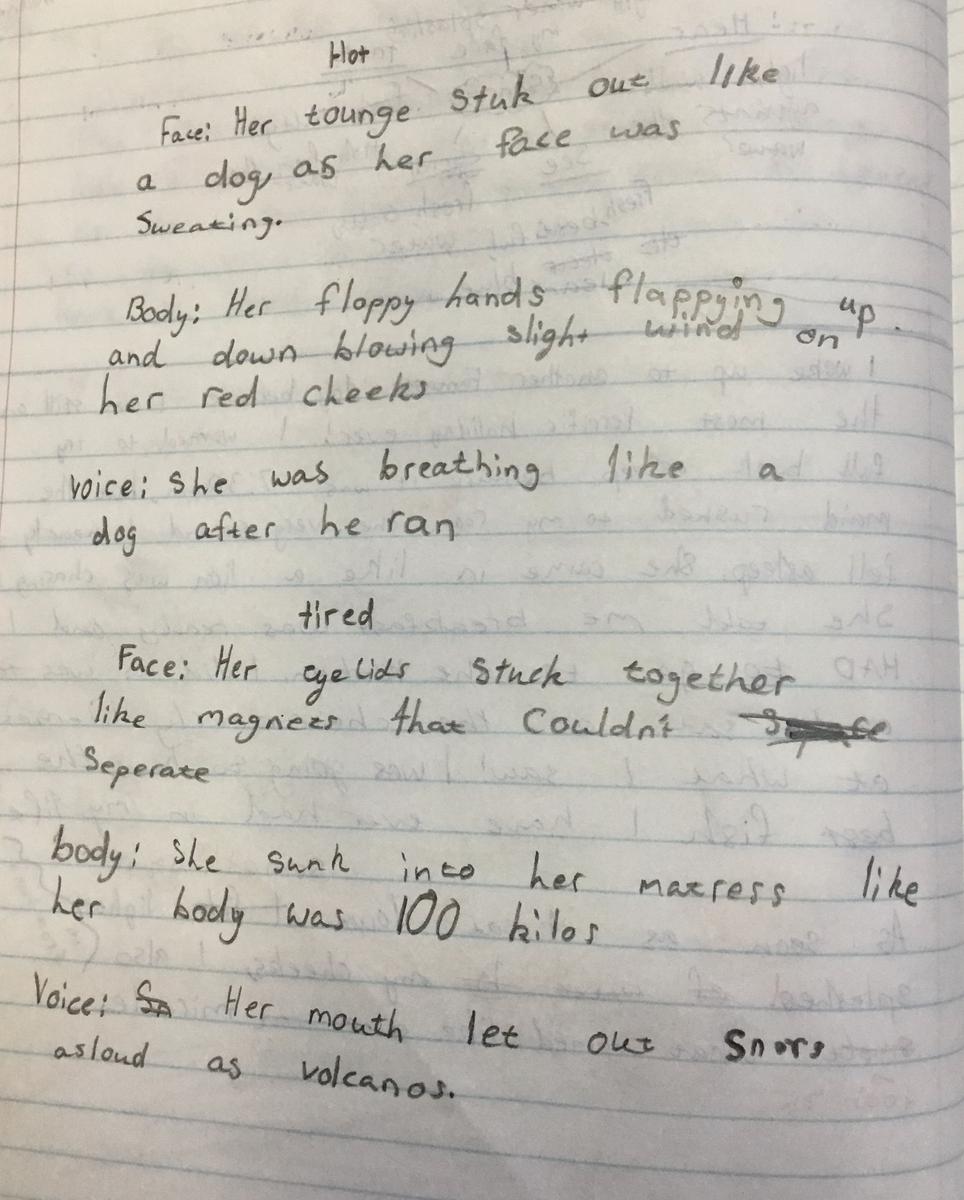 Hot
Face: Her tounge stuk out like
a dog, as her face was
Sweating.
Body: Her floppy hands flappying up
and down blowing slight wind on
her red cheeks
voice: she was breathing like a
dog after he ran
tired
Face: Her eyelids stuck together
like magnets that couldn't
Seperate
body: she sunk into her matress like
her body was 100 kilos
Voice: Her mouth let out snors
asloud as volcanos.